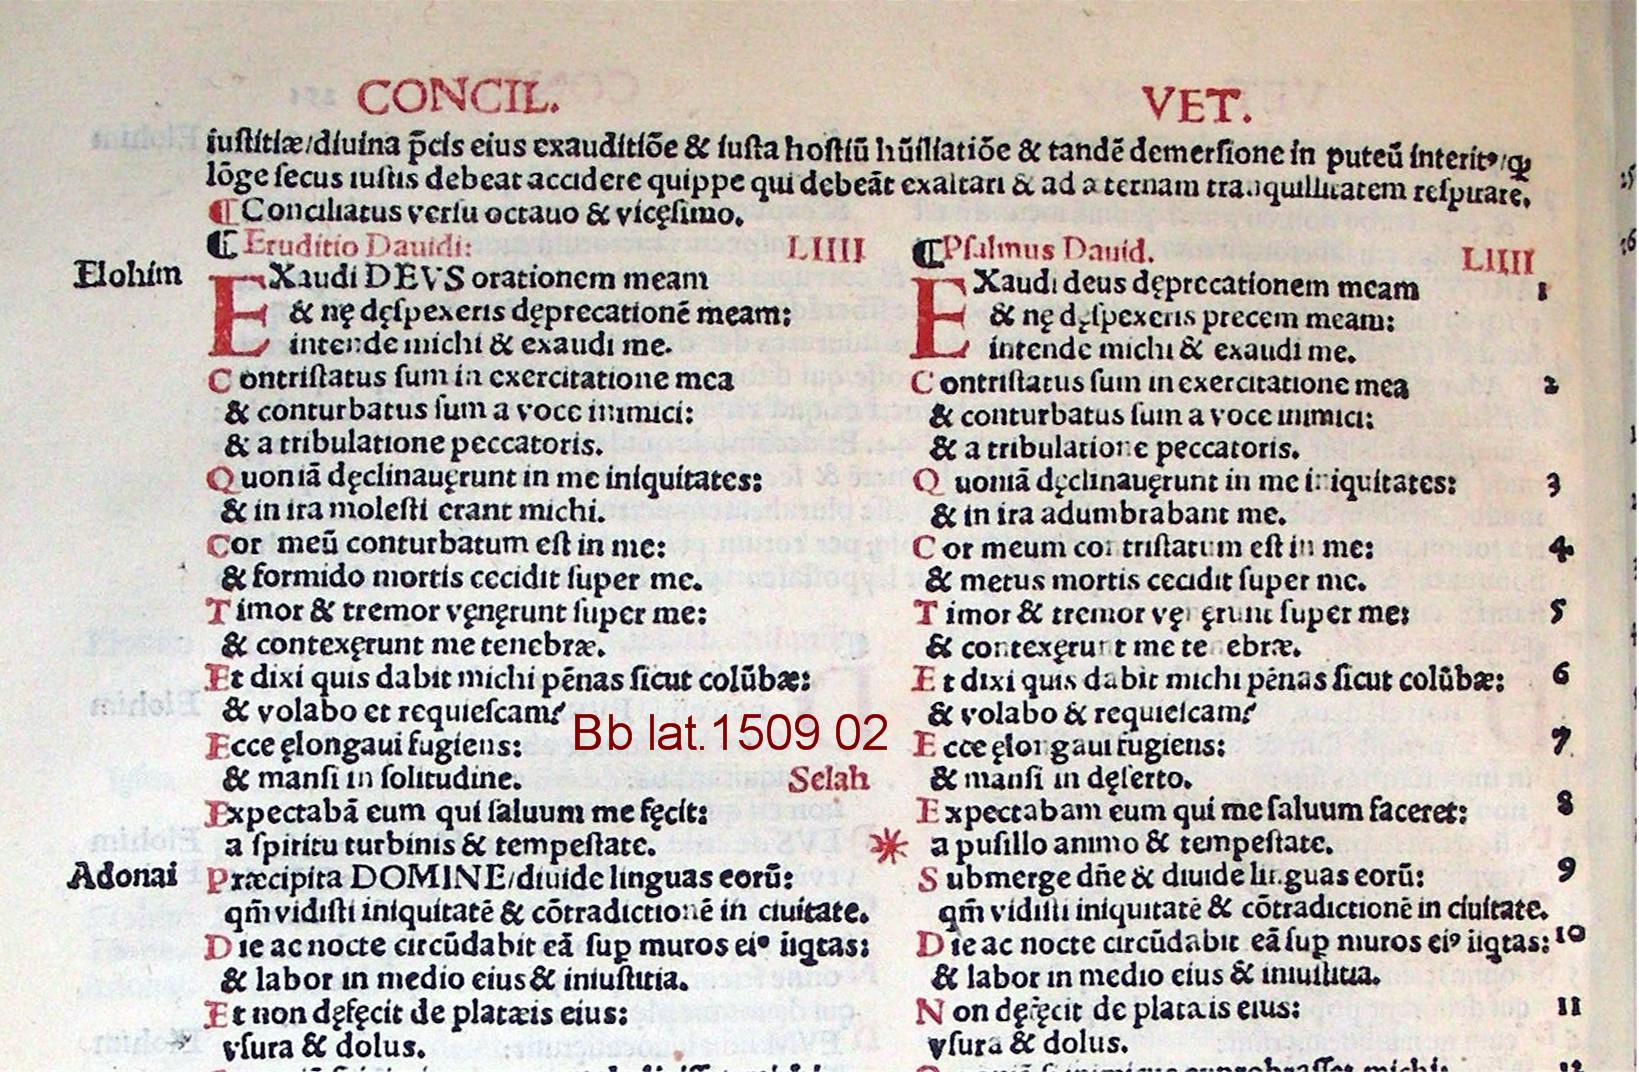 CONCIL.
VET.
iuſtitiæ/diuina p̃cis eius exauditiõe & iuſta hoſtiũ hũiliatiõe & tandẽ demerſione in puteũ interitꝰ/ꝙ
lõge ſecus iuſtis debeat accidere quippe qui debeãt exaltari & ad æternam tranquillitatem reſpirare.
¶Conciliatus verſu octauo & vicęſimo.
¶Eruditio Dauidi: LIIII
Elohim
EXaudi DEVS orationem meam
& nę dęſpexeris dęprecationẽ meam:
intende michi & exaudi me.
Contriſtatus ſum in exercitatione mea
& conturbatus ſum a voce inimici:
& a tribulatione peccatoris.
Quoniã dęclinauęrunt in me iniquitates:
& in ira moleſti erant michi.
Cor meũ conturbatum eſt in me:
& formido mortis cecidit ſuper me.
Timor & tremor vęnęrunt ſuper me:
& contexęrunt me tenebræ.
Et dixi quis dabit michi pẽnas ſicut colũbæ:
& volabo et requieſcam?
Ecce ęlongaui fugiens:
& manſi in ſolitudine. Selah
Expectabã eum qui ſaluum me fęcit:
a ſpiritu turbinis & tempeſtate.
Adonai
Præcipita DOMINE/diuide linguas eorũ:
qm̃ vidiſti iniquitatẽ & cõtradictionẽ in ciuitate.
Die ac nocte circũdabit eã ſuꝑ muros eiꝰ iiqtas:
& labor in medio eius & iniuſtitia.
Et non dęfęcit de platæis eius:
vſura & dolus.
¶Pſalmus Dauid. LIIII
EXaudi deus dęprecationem meam 1
& nę dęſpexeris precem meam:
intende michi & exaudi me.
Contriſtatus ſum in exercitatione mea 2
& conturbatus ſum a voce inimici:
& a tribulatione peccatoris.
Quoniã dęclinauęrunt in me iniquitates: 3
& in ira adumbrabant me.
Cor meum contriſtatum eſt in me: 4
& metus mortis cecidit ſuper me.
Timor & tremor vęnęrunt ſuper me: 5
& contexęrunt me tenebræ.
Et dixi quis dabit michi pẽnas ſicut colũbæ: 6
& volabo & requieſcam?
Ecce ęlongaui fugiens: 7
& manſi in dęſerto.
Expectabam eum qui me ſaluum faceret: 8
a puſillo animo & tempeſtate.
Submerge dñe & diuide linguas eorũ: 9
qm̃ vidiſti iniquitatẽ & cõtradictionẽ in ciuitate.
Die ac nocte circũdabit eã ſuꝑ muros eiꝰ iiqtas: 10
& labor in medio eius & iniuſtitia.
Non dęfęcit de plateis eius: 11
vſura & dolus.
Bb lat.1509 02